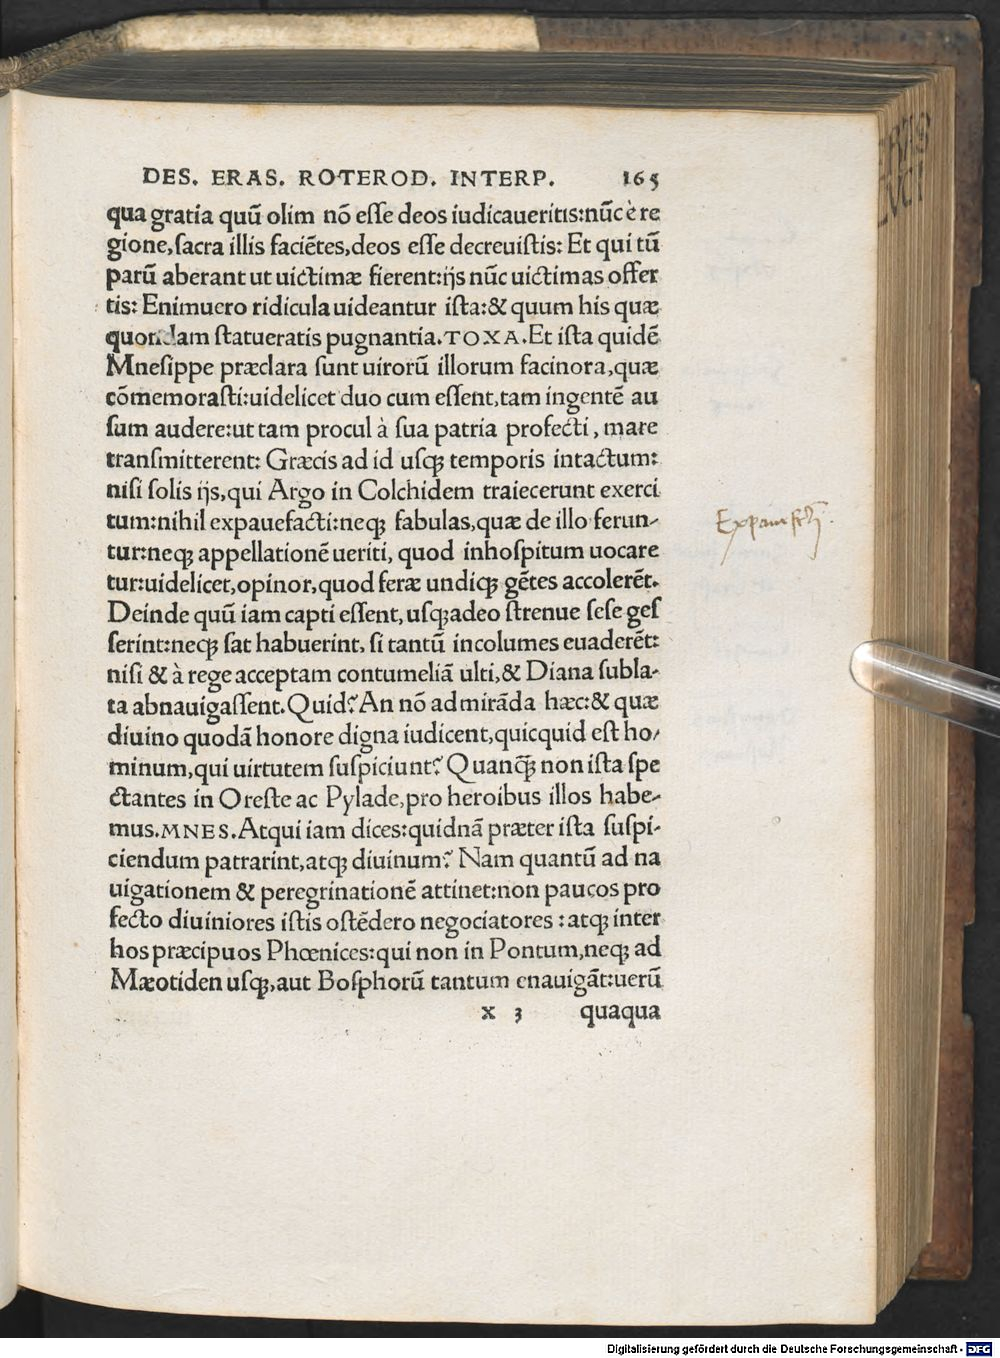 DES. ERAS. ROTEROD. INTERP. 165
qua gratia quū olim nō eſſe deos iudicaueritis:nūc è re
gione,ſacra illis faciētes,deos eſſe decreuiſtis: Et qui tū
parū aberant ut uictimæ fierent:ijs nūc uictimas offer
tis: Enimuero ridicula uideantur iſta:& quum his quæ
quondam ſtatueratis pugnantia.TOXA.Et iſta quidē
Mneſippe præclara ſunt uirorū illorum facinora,quæ
cōmemoraſti:uidelicet duo cum eſſent,tam ingentē au
ſum audere:ut tam procul à ſua patria profecti, mare
tranſmitterent: Græcis ad id uſqꝫ temporis intactum:
niſi ſolis ijs,qui Argo in Colchidem traiecerunt exerci
tum:nihil expauefacti:neqꝫ fabulas,quæ de illo ferun-
tur:neqꝫ appellationē ueriti, quod inhoſpitum uocare
tur:uidelicet,opinor,quod feræ undiqꝫ gētes accolerēt.
Deinde quū iam capti eſſent, uſqꝫadeo ſtrenue ſeſe geſ
ſerint:neqꝫ ſat habuerint, ſi tantū incolumes euaderēt:
niſi & à rege acceptam contumeliā ulti,& Diana ſubla-
ta abnauigaſſent.Quid? An nō admirāda hæc:& quæ
diuino quodā honore digna iudicent,quicquid eſt ho-
minum,qui uirtutem ſuſpiciunt? Quanqꝫ̄ non iſta ſpe
ctantes in Oreſte ac Pylade,pro heroibus illos habe-
mus.MNES.Atqui iam dices:quidnā præter iſta ſuſpi-
ciendum patrarint,atqꝫ diuinum? Nam quantū ad na
uigationem & peregrinationē attinet:non paucos pro
fecto diuiniores iſtis oſtēdero negociatores : atqꝫ inter
hos præcipuos Phœnices:qui non in Pontum,neqꝫ ad
Mæotiden uſqꝫ,aut Boſphorū tantum enauigāt:uerū
x 3 quaqua
Digitalisierung gefördert durch die Deutsche Forschungsgemeinschaft - DFG